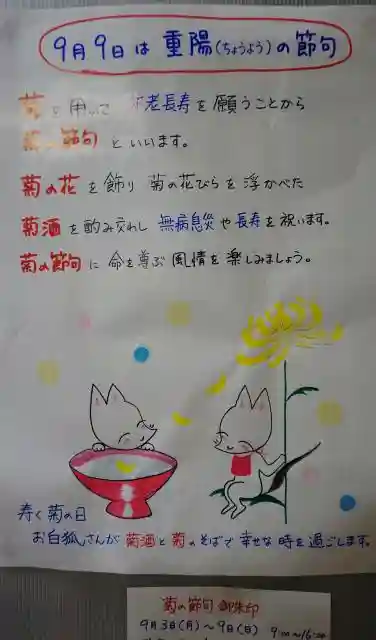 9月9日は重陽(ちょうよう)の節句
菊を用いて 不老長寿を願うことから
菊の節句といいます。
菊の花を飾り 菊の花びらを浮かべた
菊酒を酌み交わし 無病息災や長寿を祝います。
菊の節句に 命を尊ぶ風情を楽しみましょう。
寿ぐ菊の日
お白狐さんが菊酒と菊のそばで幸せな時を過ごします。
菊の節句 御朱印
9月3日(月)〜9日(日) 9:00〜16:00